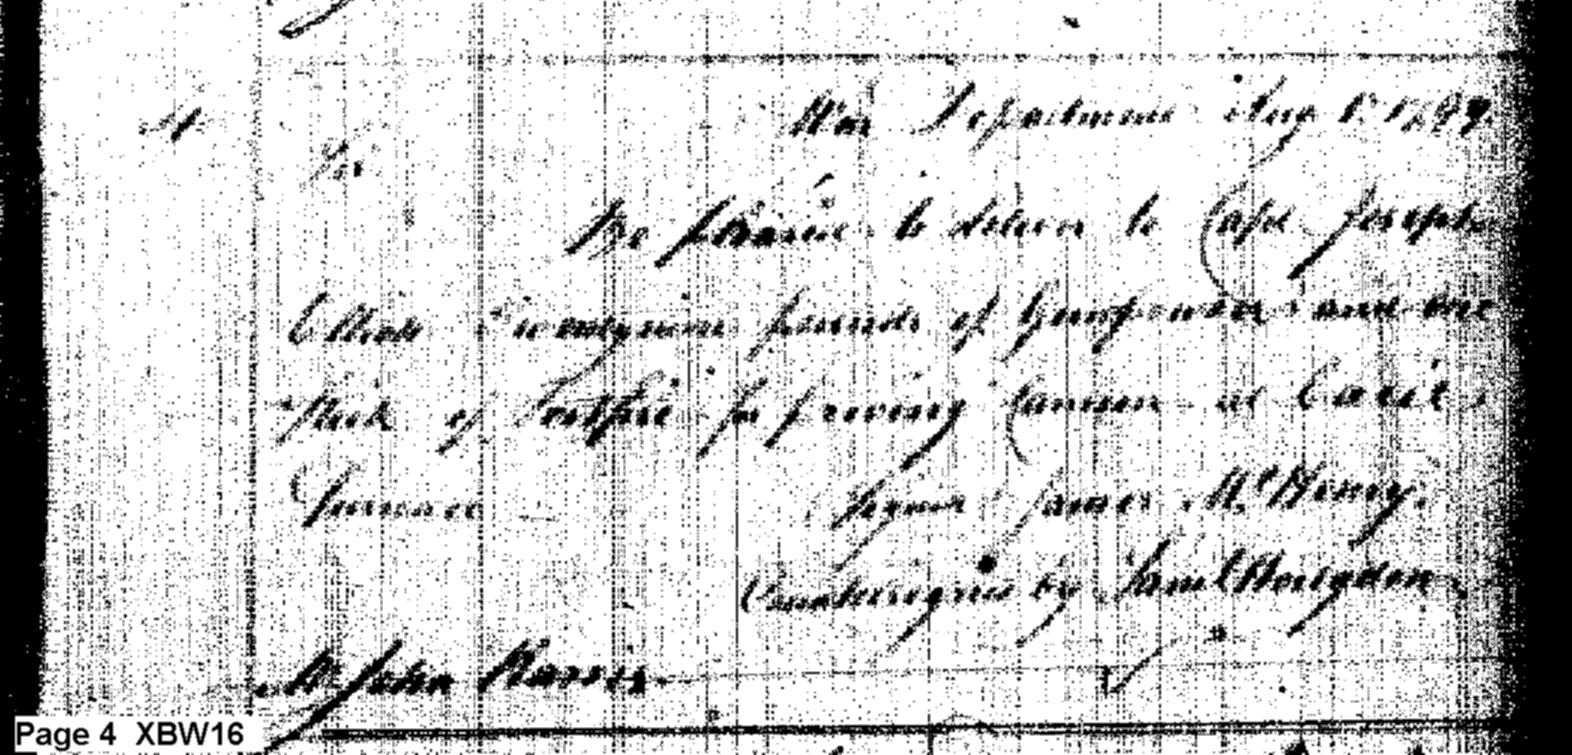 War Department Aug 8. 1799.
Sir
Be pleased to deliver to Capt. Joseph
Elliott pounds of Gunpowder and one
Stick of Portfire for proving Cannon at Cecil
Furnace
Signed James McHenry.
Countersigned by Saml Hodgdon
Mr John Harris
Page 4 XBW16